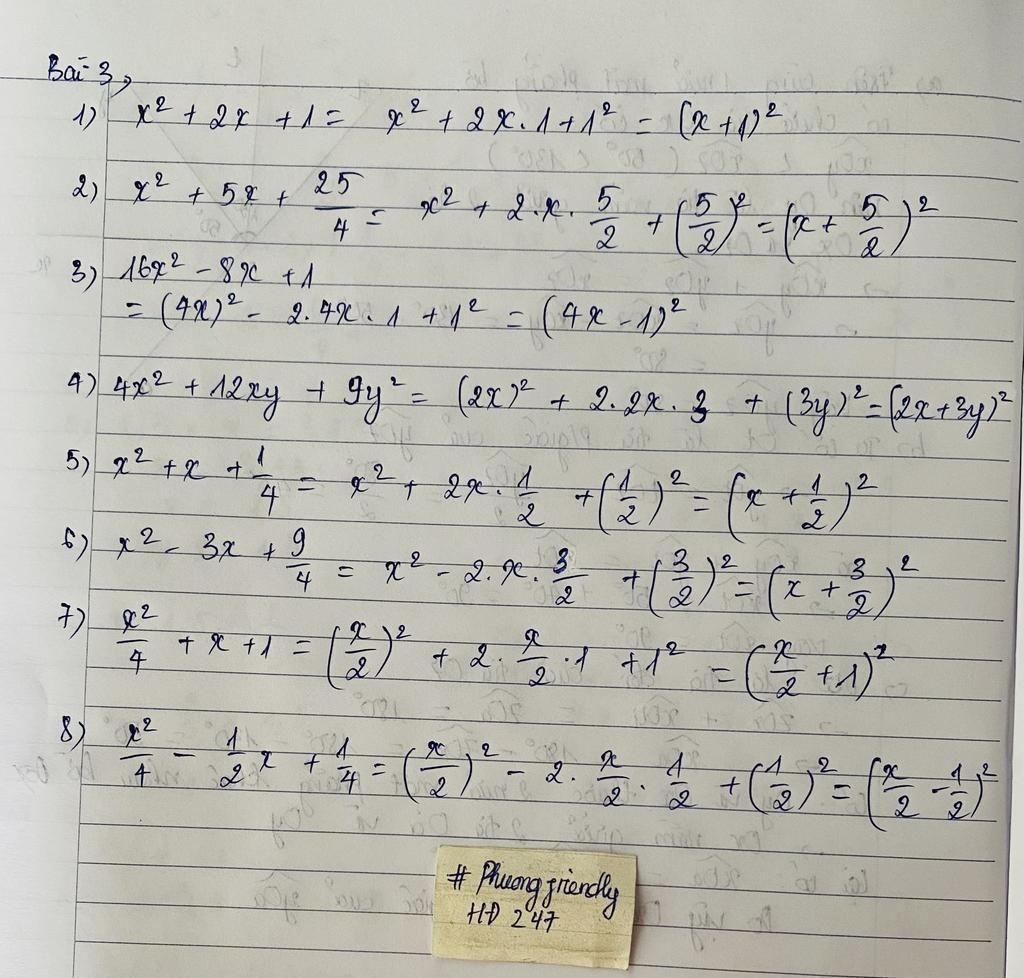 Bài 3,
1) x² + 2x + 1 = x² + 2x.1 + 1² = (x+1)²
2) x² + 5x + 25/4 = x² + 2.x.5/2 + (5/2)² = (x + 5/2)²
3) 16x² - 8x + 1
= (4x)² - 2.4x.1 + 1² = (4x - 1)²
4) 4x² + 12xy + 9y² = (2x)² + 2.2x.3 + (3y)² = (2x+3y)²
5) x² + x + 1/4 = x² + 2x.1/2 + (1/2)² = (x + 1/2)²
6) x² - 3x + 9/4 = x² - 2.x.3/2 + (3/2)² = (x + 3/2)²
7) x²/4 + x + 1 = (x/2)² + 2.x/2.1 + 1² = (x/2 + 1)²
8) x²/4 - 1/2x + 1/4 = (x/2)² - 2.x/2.1/2 + (1/2)² = (x/2 - 1/2)²
# Phuongfriendly
HD 247